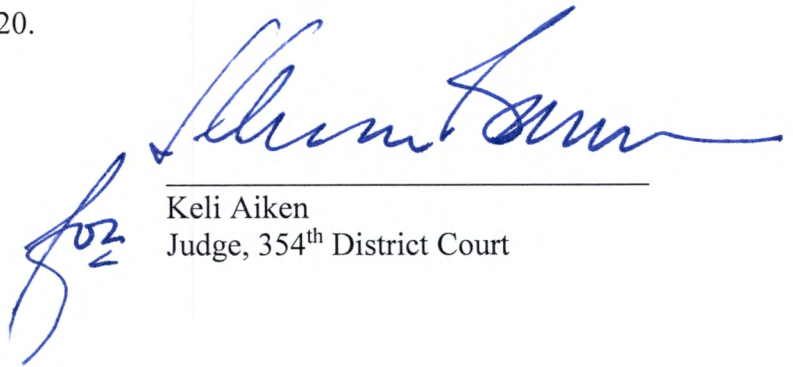 20.
for
Keli Aiken
Judge, 354th District Court